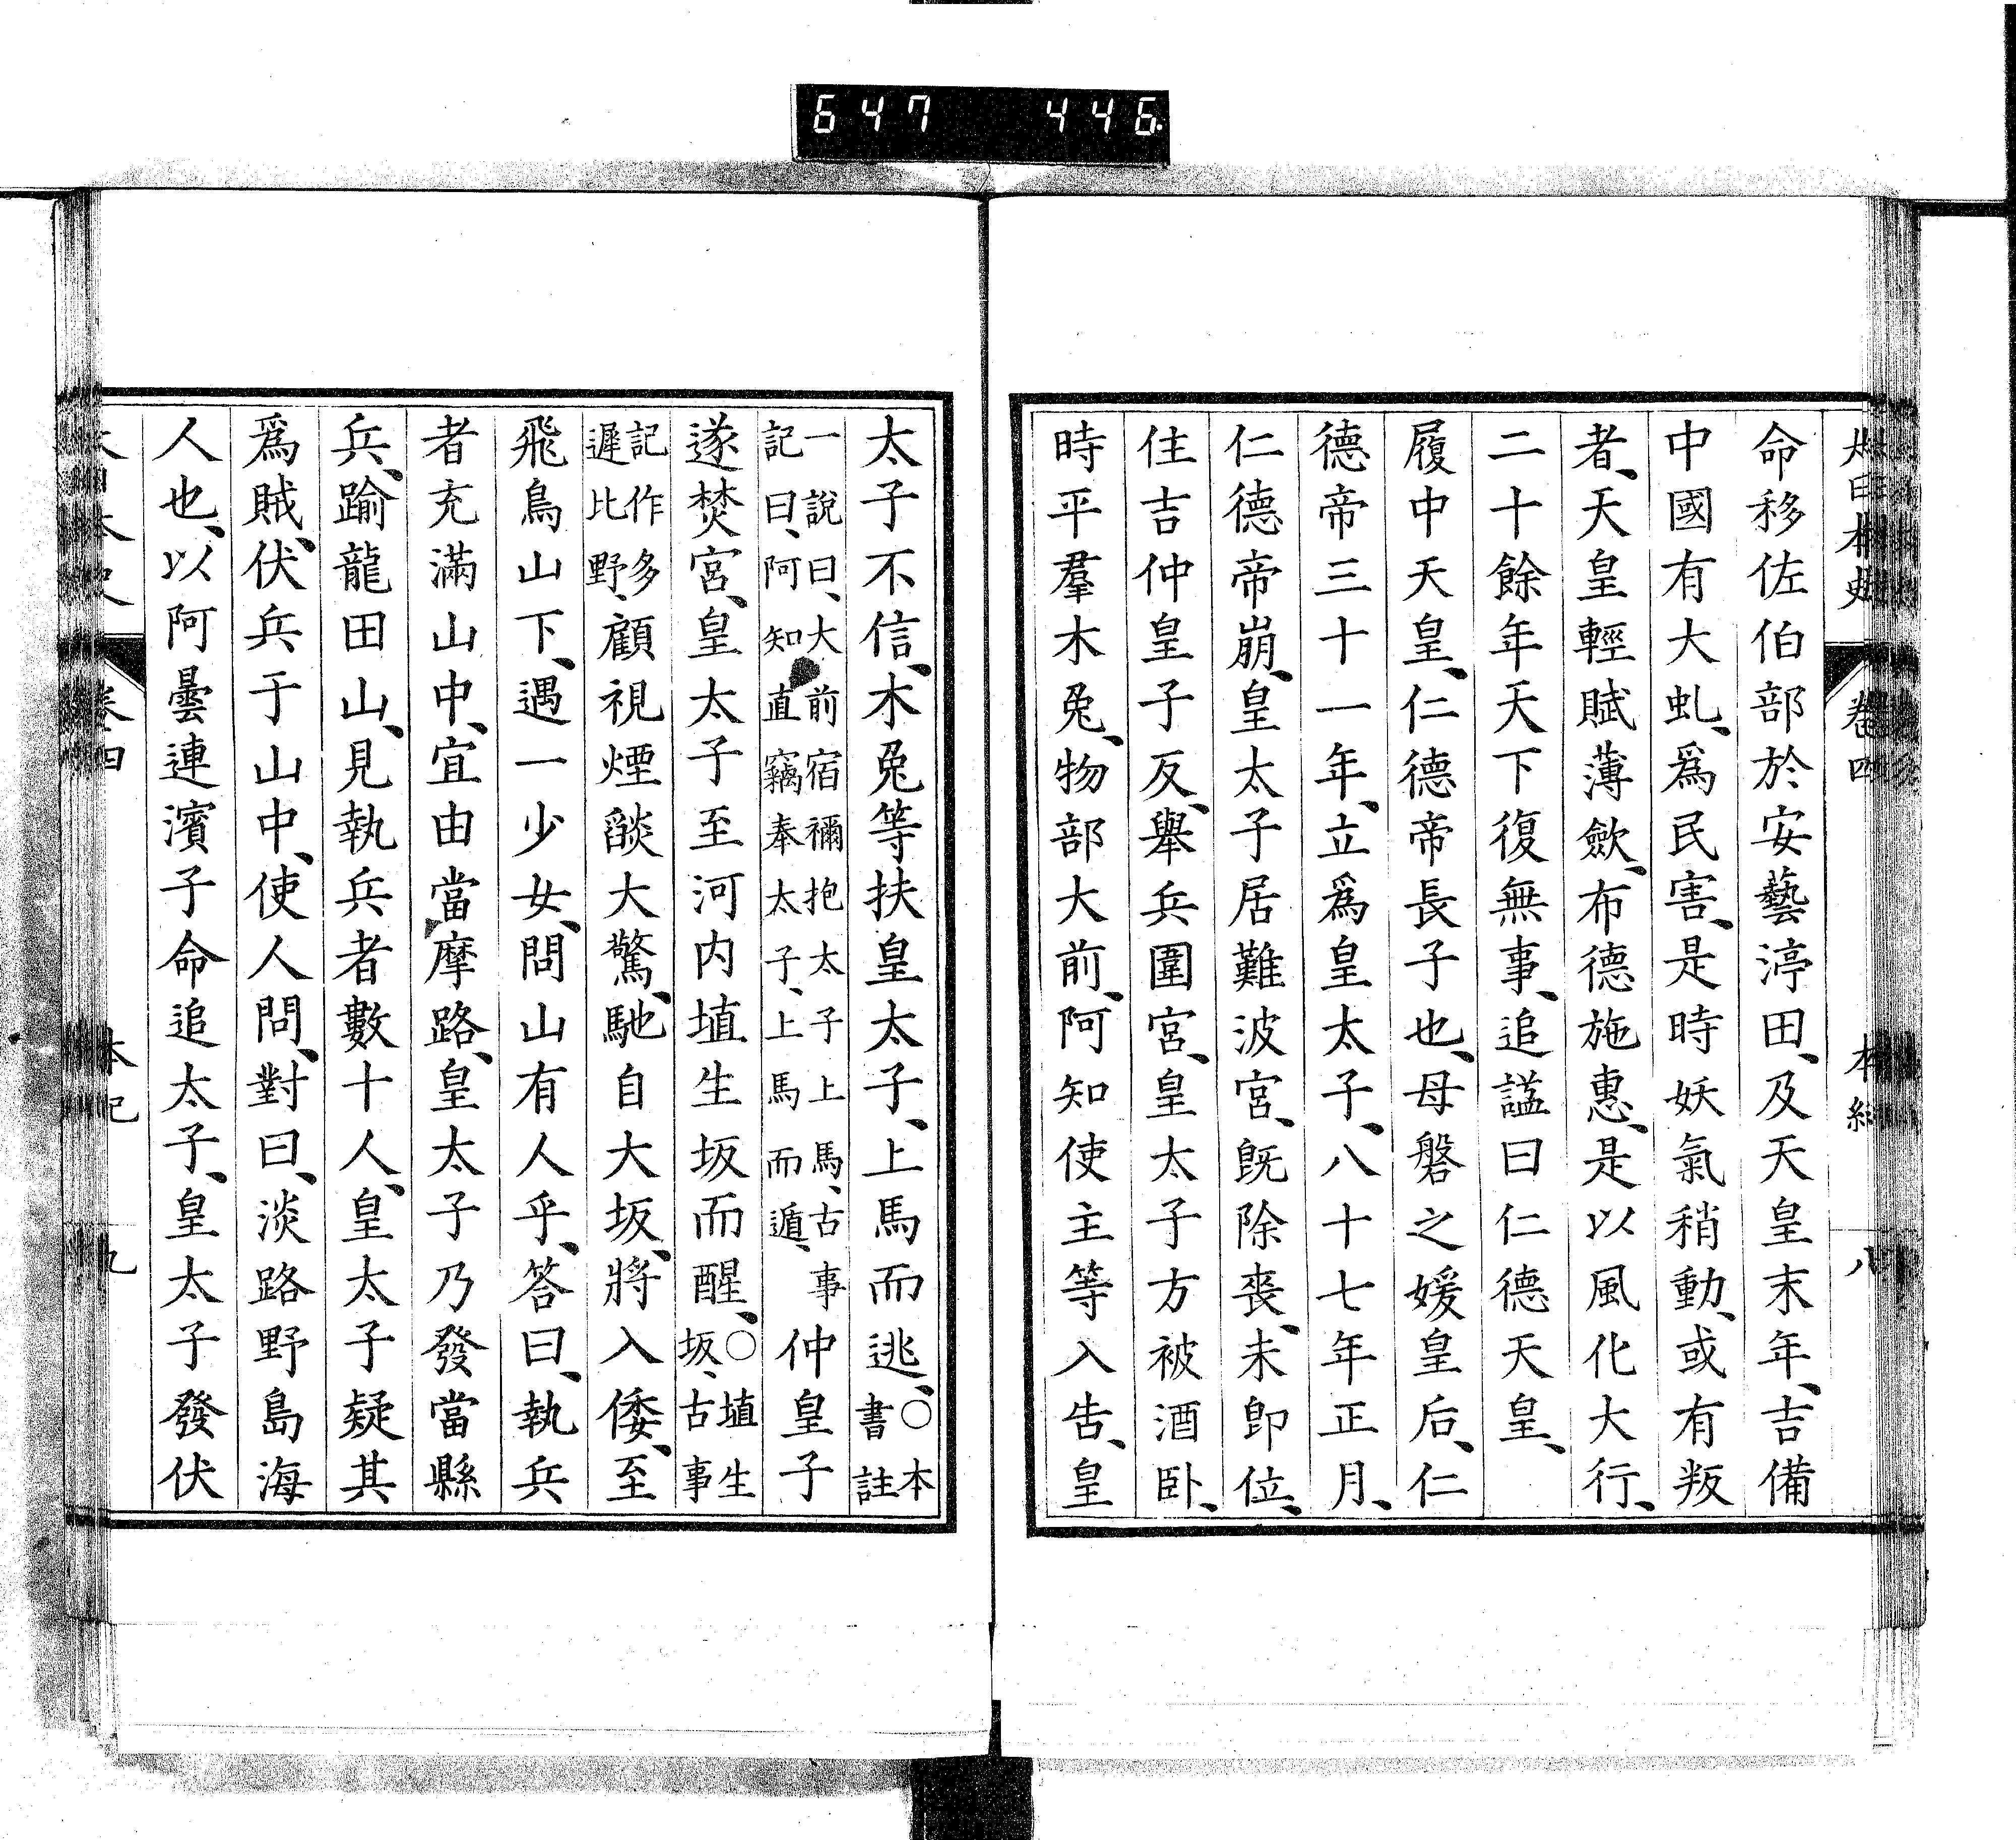 647 446
大日本史 卷四 本紀 八
命移佐伯部於安藝渟田、及天皇末年、吉備
中國有大虬、爲民害、是時妖氣稍動、或有叛
者、天皇輕賦薄歛、布德施惠、是以風化大行、
二十餘年天下復無事、追謚曰仁德天皇、
履中天皇、仁德帝長子也、母磐之媛皇后、仁
德帝三十一年、立爲皇太子、八十七年正月、
仁德帝崩、皇太子居難波宮、旣除喪、未卽位、
住吉仲皇子反、舉兵圍宮、皇太子方被酒臥、
時平羣木兔、物部大前、阿知使主等入告、皇
太子不信、木兔等扶皇太子、上馬而逃、○本書註
一說曰、大前宿禰抱太子上馬、古事記曰、阿知直竊奉太子、上馬而遁、仲皇子
遂焚宮、皇太子至河内埴生坂而醒、○埴生坂、古事
記作多遲比野、顧視煙燄大驚、馳自大坂、將入倭、至
飛鳥山下、遇一少女、問山有人乎、答曰、執兵
者充滿山中、宜由當摩路、皇太子乃發當縣
兵、踰龍田山、見執兵者數十人、皇太子疑其
爲賊、伏兵于山中、使人問、對曰、淡路野島海
人也、以阿曇連濱子命追太子、皇太子發伏
大日本史 卷四 本紀 九